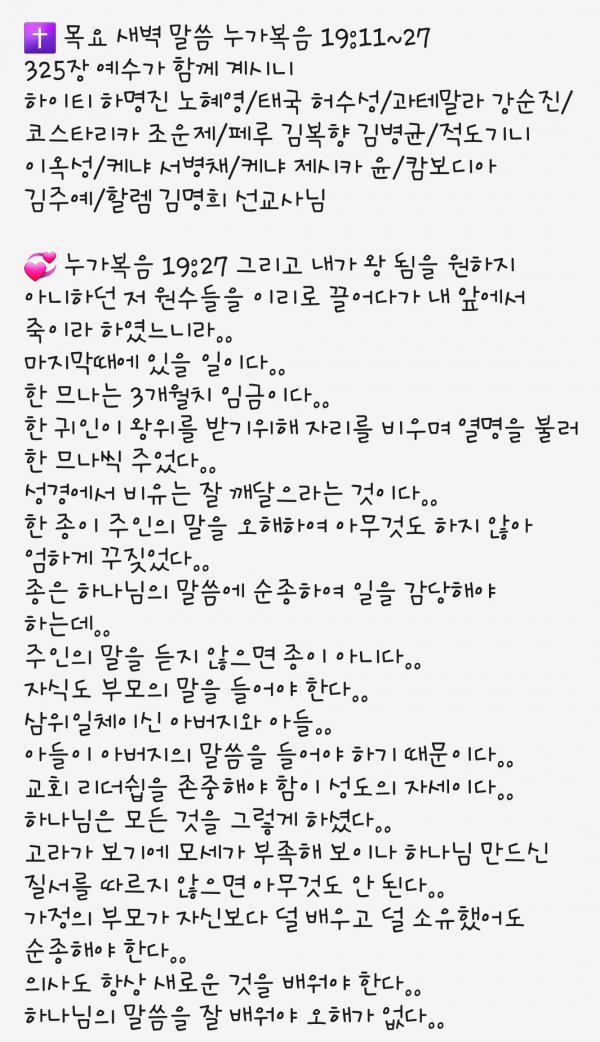 ✝️ 목요 새벽 말씀 누가복음 19:11~27
325장 예수가 함께 계시니
하이티 하명진 노혜영/태국 허수성/과테말라 강순진/
코스타리카 조운제/페루 김복향 김병균/적도기니
이옥성/케냐 서병채/케냐 제시카 윤/캄보디아
김주예/할렘 김명희 선교사님

💞 누가복음 19:27 그리고 내가 왕 됨을 원하지
아니하던 저 원수들을 이리로 끌어다가 내 앞에서
죽이라 하였느니라..
마지막때에 있을 일이다..
한 므나는 3개월치 임금이다..
한 귀인이 왕위를 받기위해 자리를 비우며 열명을 불러
한 므나씩 주었다..
성경에서 비유는 잘 깨달으라는 것이다..
한 종이 주인의 말을 오해하여 아무것도 하지 않아
엄하게 꾸짖었다..
종은 하나님의 말씀에 순종하여 일을 감당해야
하는데..
주인의 말을 듣지 않으면 종이 아니다..
자식도 부모의 말을 들어야 한다..
삼위일체이신 아버지와 아들..
아들이 아버지의 말씀을 들어야 하기 때문이다..
교회 리더쉽을 존중해야 함이 성도의 자세이다..
하나님은 모든 것을 그렇게 하셨다..
고라가 보기에 모세가 부족해 보이나 하나님 만드신
질서를 따르지 않으면 아무것도 안 된다..
가정의 부모가 자신보다 덜 배우고 덜 소유했어도
순종해야 한다..
의사도 항상 새로운 것을 배워야 한다..
하나님의 말씀을 잘 배워야 오해가 없다..